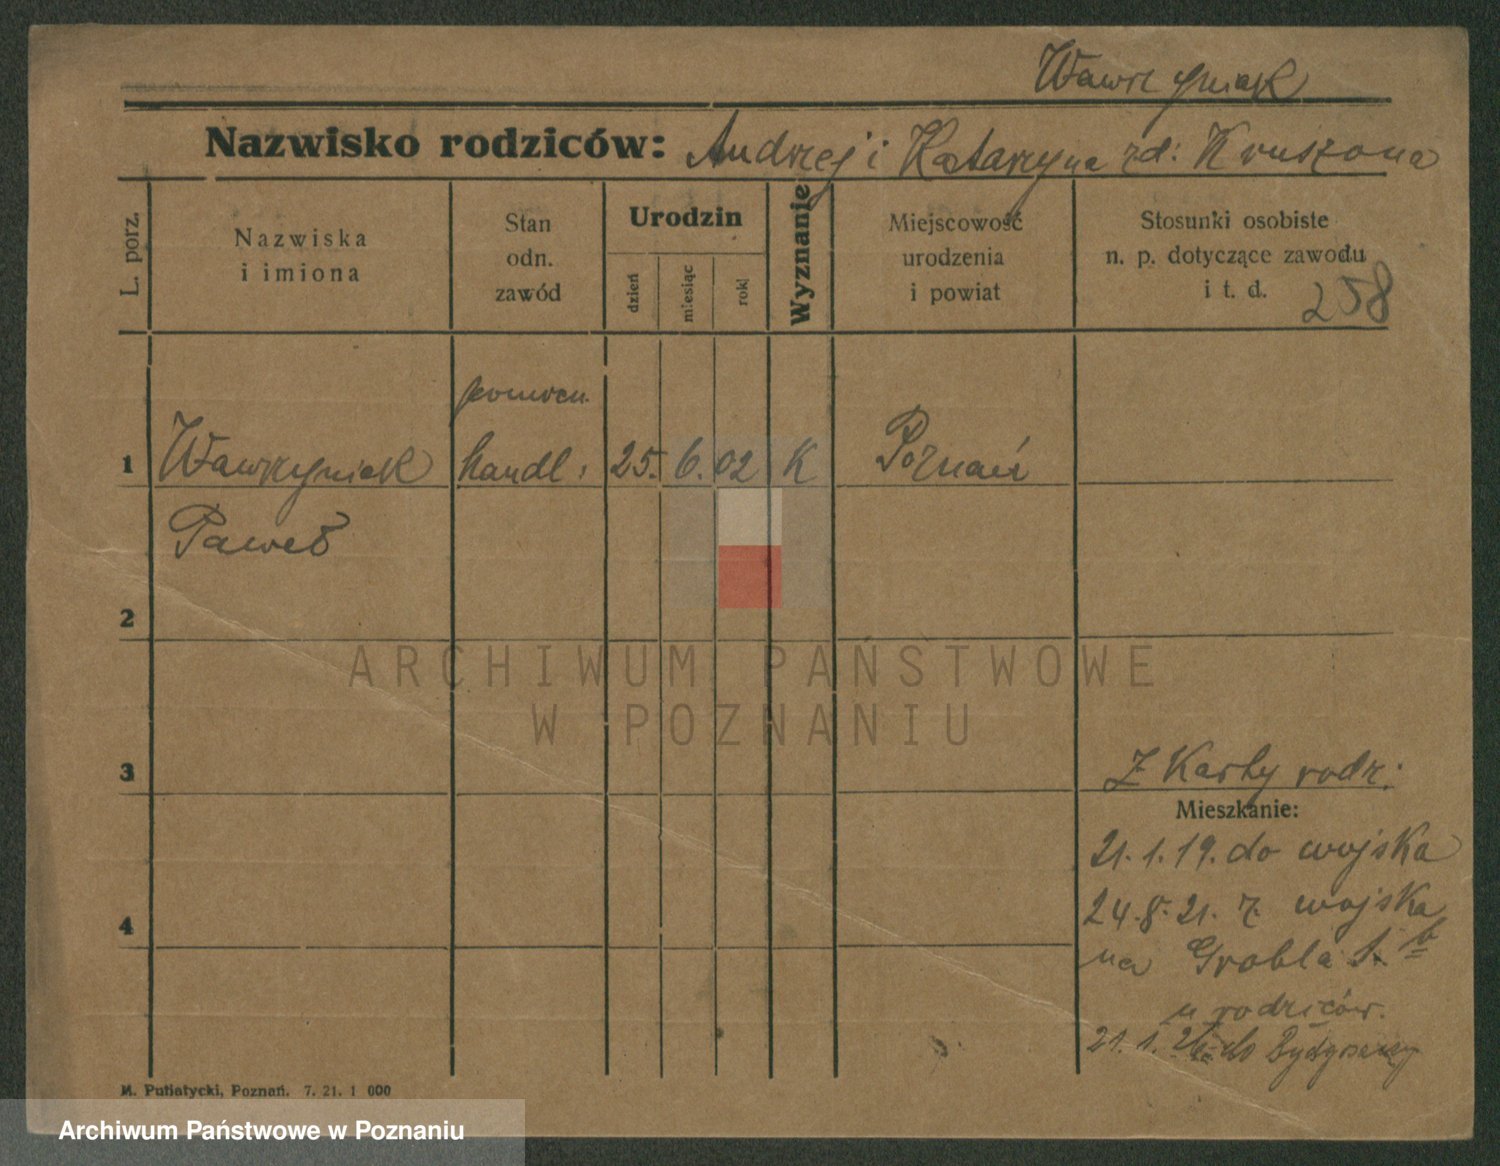 Wawrzyniak
Nazwisko rodziców: Andrzej i Katarzyna zd: Kruszona
L. porz.
Nazwiska
i imiona
Stan
odn.
zawód
Urodzin
dzień
miesiąc
rok
Wyznanie
Miejscowość
urodzenia
i powiat
Stosunki osobiste
n. p. dotyczące zawodu
i t. d.
258
pomocn.
1 Wawrzyniak handl: 25. 6. 02 K Poznań
Paweł
2
3
Z Karty rodz:
Mieszkanie:
21.1.19. do wojska
24.8.21. z wojska
4
na Grobla
u rodziców.
21.1. do Bydgoszczy
M. Putiatycki, Poznań. 7. 21. 1 000
ARCHIWUM PAŃSTWOWE
W POZNANIU
Archiwum Państwowe w Poznaniu